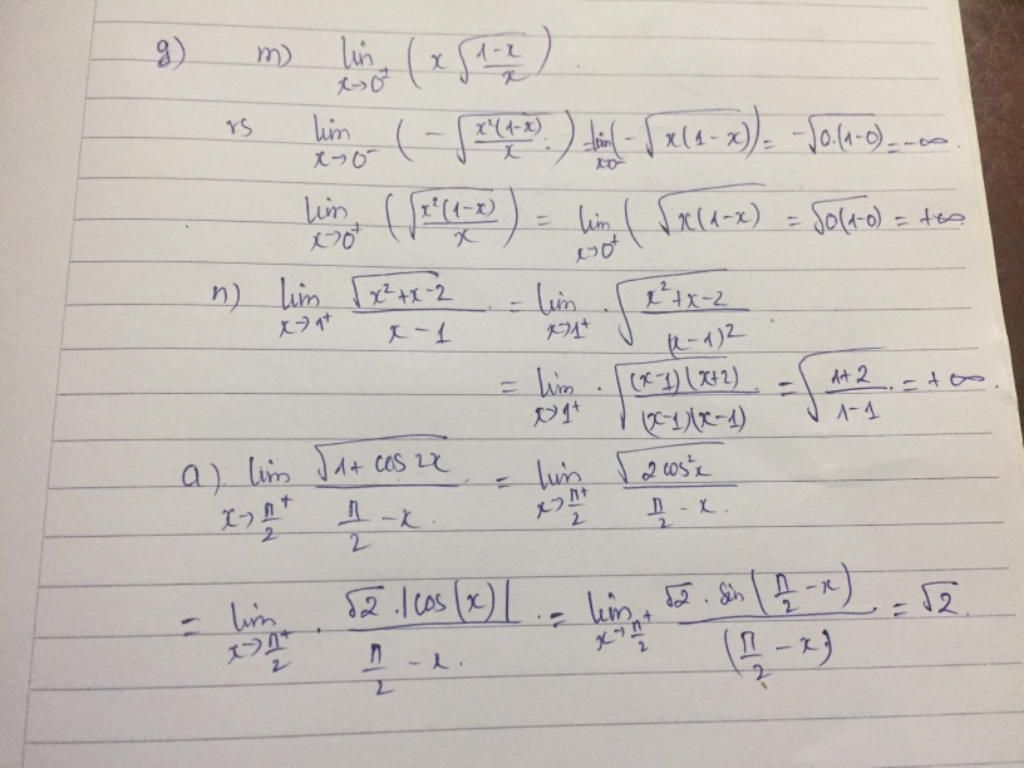 g) m) lim x→0⁺ ( x √((1-x)/x) )
rs lim x→0⁻ ( - √(x²(1-x)/x) ) = lim x→0⁻ ( - √(x(1-x)) ) = -√(0.(1-0)) = -∞.
lim x→0⁺ ( √(x²(1-x)/x) ) = lim x→0⁺ ( √(x(1-x)) = √(0(1-0)) = +∞
n) lim x→1⁺ √(x²+x-2) / (x-1) = lim x→1⁺ . √((x²+x-2)/(x-1)²)
= lim x→1⁺ . √((x-1)(x+2)/(x-1)(x-1)) = √((1+2)/(1-1)) = +∞.
a) lim x→π/2⁺ √(1+cos 2x) / (π/2 - x) = lim x→π/2⁺ √(2cos²x) / (π/2 - x)
= lim x→π/2⁺ . √2.|cos(x)| / (π/2 - x) = lim x→π/2⁺ √2.sin(π/2 - x) / (π/2 - x) = √2.